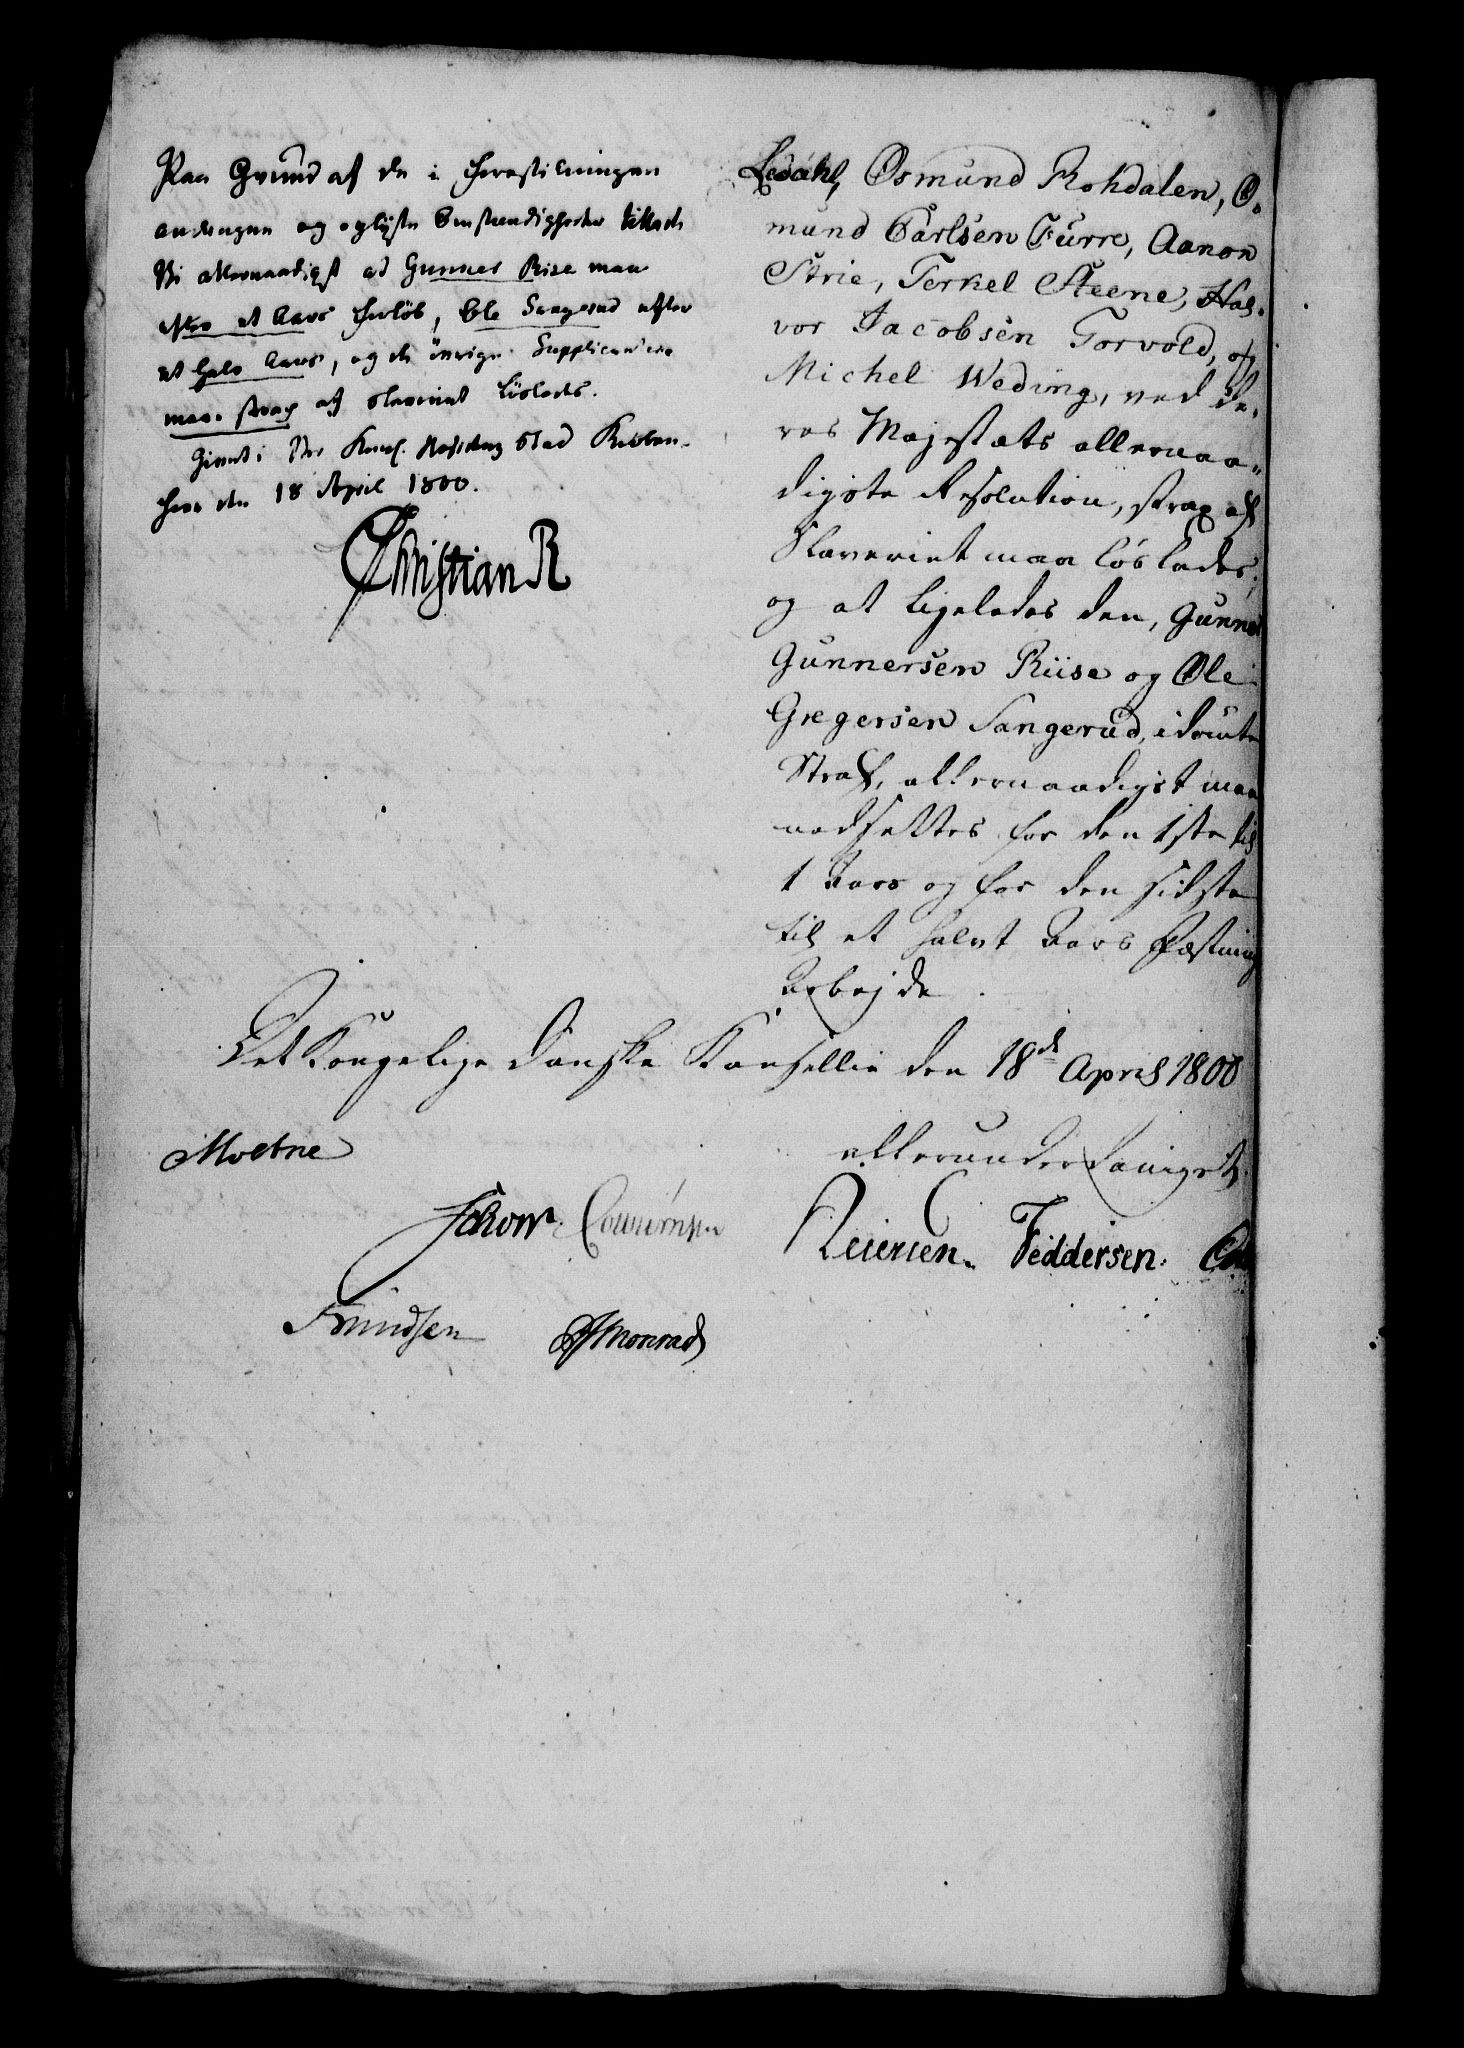 Paa Grund af de i Forestillingen
andragne og oplyste Omstændigheder tillade
Vi allernaadigst at Gunner Riise maa
efter et Aars Forløb, Ole Sangerud efter
et halv Aars, og de øvrige Supplicantere
maae strax af Slaveriet løslades.
Givet i Vor Kongl. Residenz Stad Kiøben-
havn den 18 April 1800.
Christian R
Ledahl, Osmund Rohdalen, O-
mund Carlsen Furre, Aanon
Strie, Terkel Steene, Hal-
vor Jacobsen Torvold, og
Michel Weding, ved De-
res Majestæts allernaa-
digste Resolution, strax af
Slaveriet maa løslades,
og at ligeledes den, Gunner
Gunnersen Riise og Ole
Gregersen Sangerud, idømte
Straf, allernaadigst maa
nedsættes for den 1ste til
1 Aars og for den sidste
til et halvt Aars Fæstnings
Arbejde.
Det Kongelige Danske Kancellie den 18de April 1800
allerunderdanigst
Moltke
Schow. Reiersen. Feddersen.
Knudsen Monrad